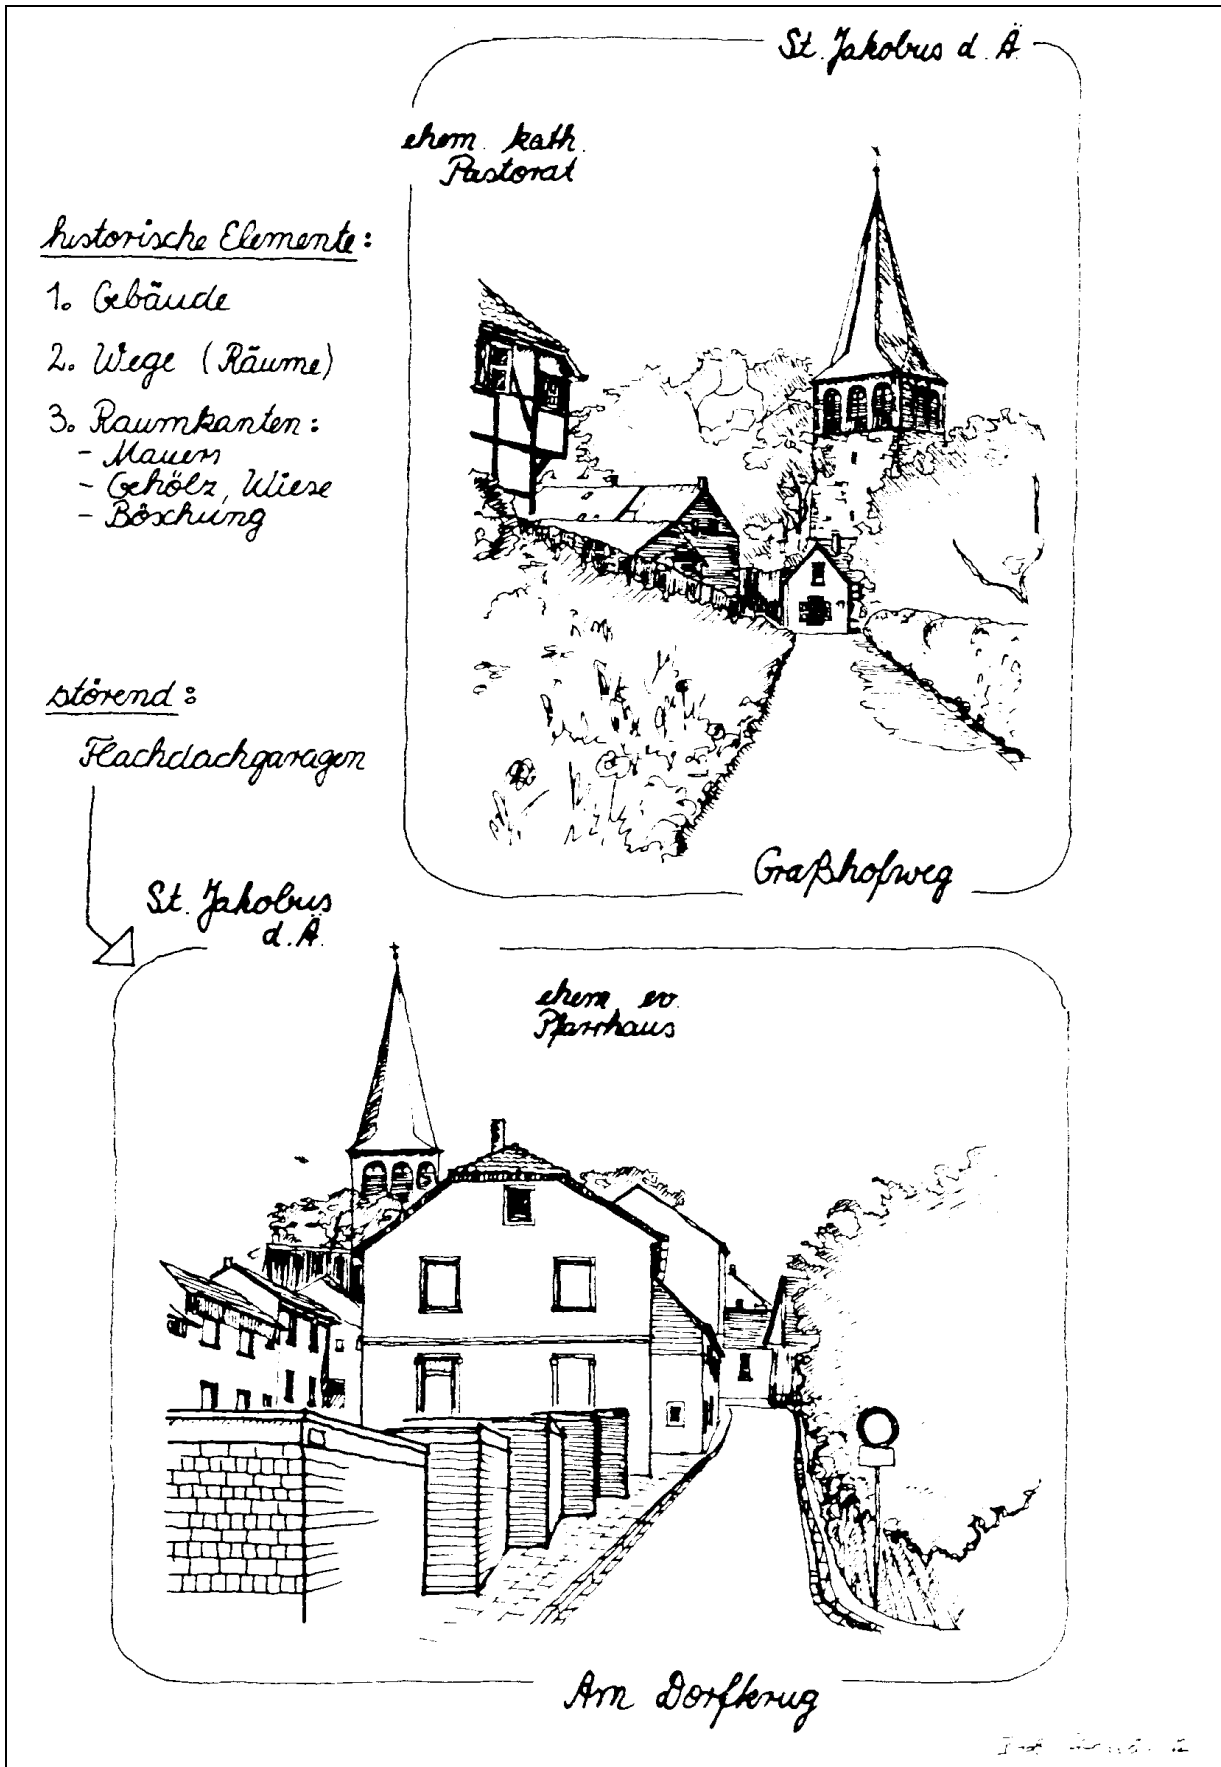 St. Jakobus d. Ä.
ehem. kath.
Pastorat
historische Elemente:
1. Gebäude
2. Wege (Räume)
3. Raumkanten:
- Mauern
- Gehölz, Wiese
- Böschung
störend:
Flachdachgaragen
Graßhofweg
St. Jakobus
d. Ä.
ehem. ev.
Pfarrhaus
Am Dorfkrug